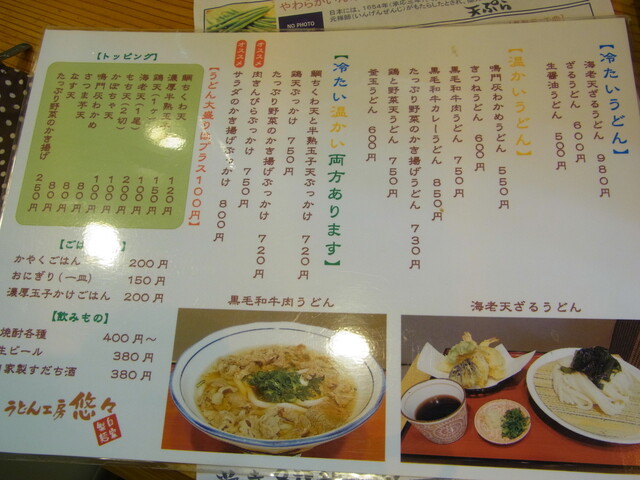 やわらかい
日本には、1654年
元禅師(いんげんぜんじ)がもたらしたとされ、
NO PHOTO
天ぷら
【冷たいうどん】
海老天ざるうどん 980円
ざるうどん 600円
生醤油うどん 500円
【温かいうどん】
鳴門灰わかめうどん 550円
きつねうどん 600円
黒毛和牛肉うどん 750円
黒毛和牛カレーうどん 850円
たっぷり野菜のかき揚げうどん 730円
鶏と野菜天うどん 750円
釜玉うどん 600円
【冷たい温かい両方あります】
鯛ちくわ天と半熟玉子天ぶっかけ 720円
鶏天ぶっかけ 750円
たっぷり野菜のかき揚げぶっかけ 720円
オススメ 肉きんぴらぶっかけ 750円
オススメ サラダのかき揚げぶっかけ 800円
【うどん大盛りはプラス100円】
【トッピング】
鯛ちくわ天 120円
濃厚半熟玉
鶏天(1 150円
海老天(1尾) 150円
もち天(2切) 100円
かぼちゃ天 100円
鳴門灰わかめ 100円
さつま芋天 80円
なす天 80円
たっぷり野菜のかき揚げ 250円
【ごは
かやくごはん 200円
おにぎり(一皿) 150円
濃厚玉子かけごはん 200円
【飲みもの】
焼酎各種 400円～
生ビール 380円
自家製すだち酒 380円
うどん工房 悠々
自家製麺
黒毛和牛肉うどん
海老天ざるうどん